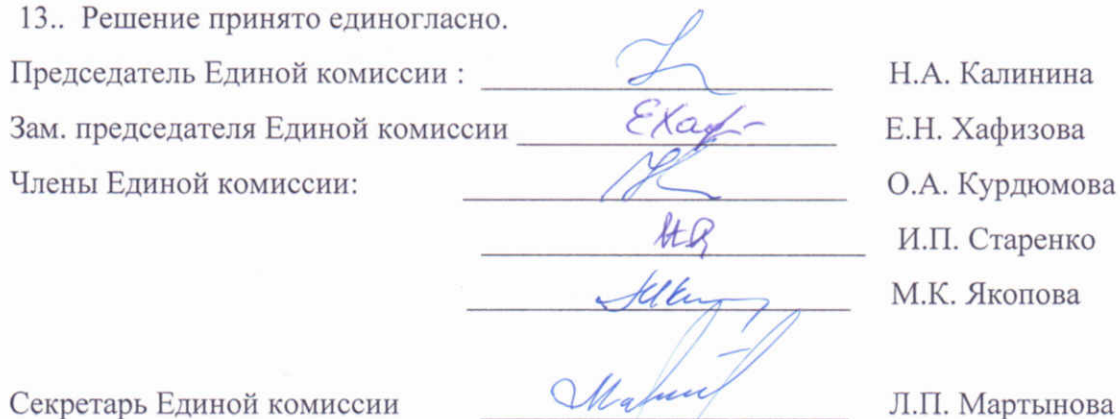 13.. Решение принято единогласно.
Председатель Единой комиссии : Н.А. Калинина
Зам. председателя Единой комиссии ЕХаф Е.Н. Хафизова
Члены Единой комиссии: О.А. Курдюмова
И.П. Старенко
М.К. Якопова
Секретарь Единой комиссии Л.П. Мартынова